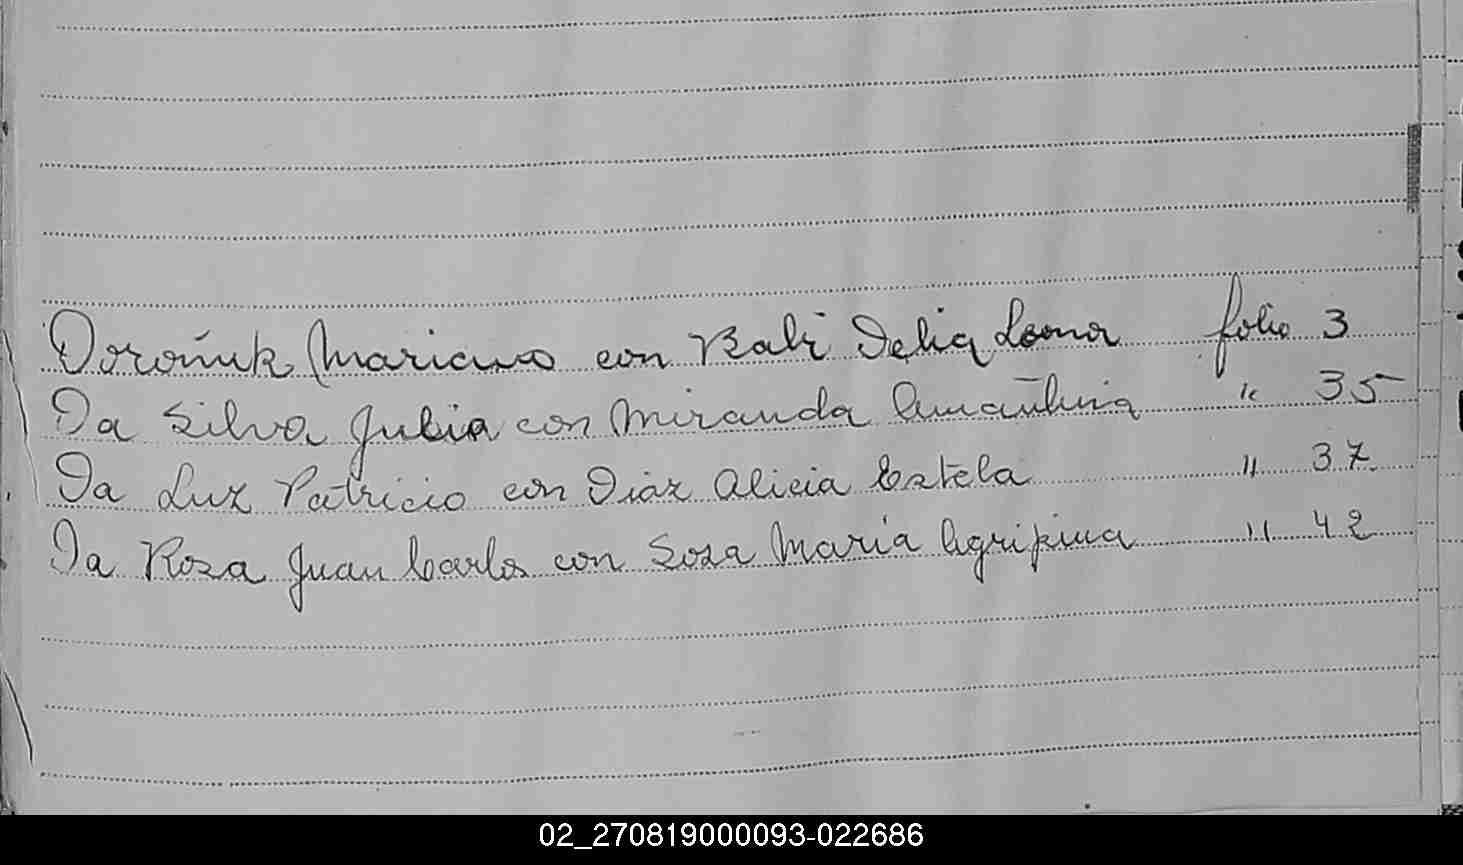 Doroñuk Mariano con Bali Delia Leonor folio 3
Da Silva Julia con Miranda Amantina " 35
Da Luz Patricio con Diaz Alicia Estela " 37
Da Rosa Juan Carlos con Sosa Maria Agripina " 42
02_270819000093-022686